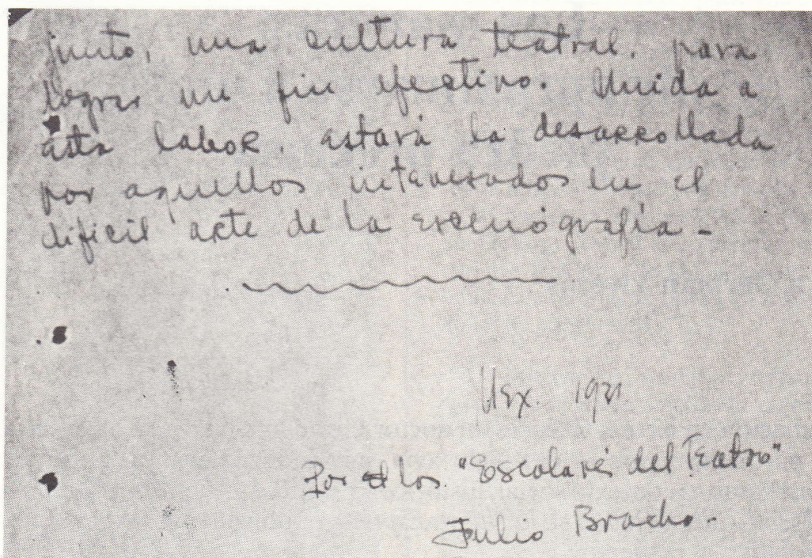 junto, una cultura teatral, para
lograr un fin efectivo. Unida a
ésta labor, estará la desarrollada
por aquellos interesados en el
dificil arte de la escenógrafía -
Mex. 1931
Por los "Escolares del Teatro"
Julio Bracho.